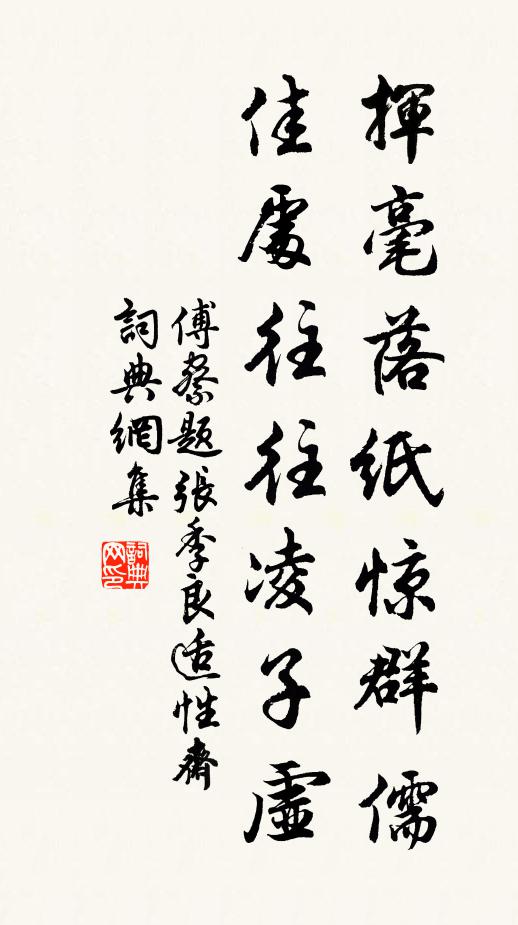 揮毫落紙惊群儒
佳處往往凌子虛
傅察題張季良适性齋
詞典網集
詞典網印